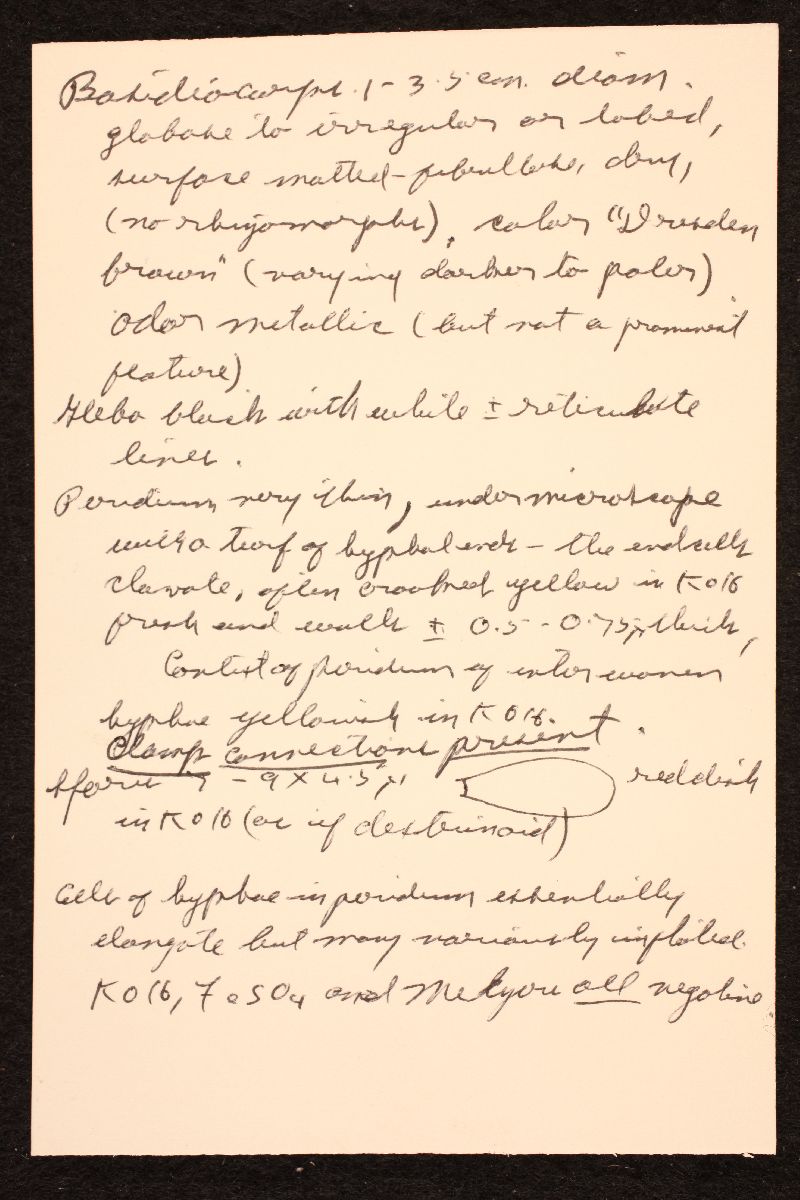 Basidiocarps 1-3.5 cm. diam.
globose to irregular or lobed,
surface matted-fibrillose, dry,
(no rhizomorphs), color "Dresden
brown" (varying darker to paler)
odor metallic (but not a prominent
feature)
Gleba black with white ± reticulate
lines.
Peridium very thin, under microscope
with a turf of hyphal ends - the end cells
clavate, often crooked yellow in KOH
fresh and walls ± 0.5-0.75μ thick,
Context of peridium of interwoven
hyphae yellowish in KOH.
Clamp connections present.
Spores 7-9 X 4.5μ reddish
in KOH (as if dextrinoid)
Cells of hyphae in peridium essentially
elongate but many variously inflated.
KOH, FeSO4 and Melzers all negative